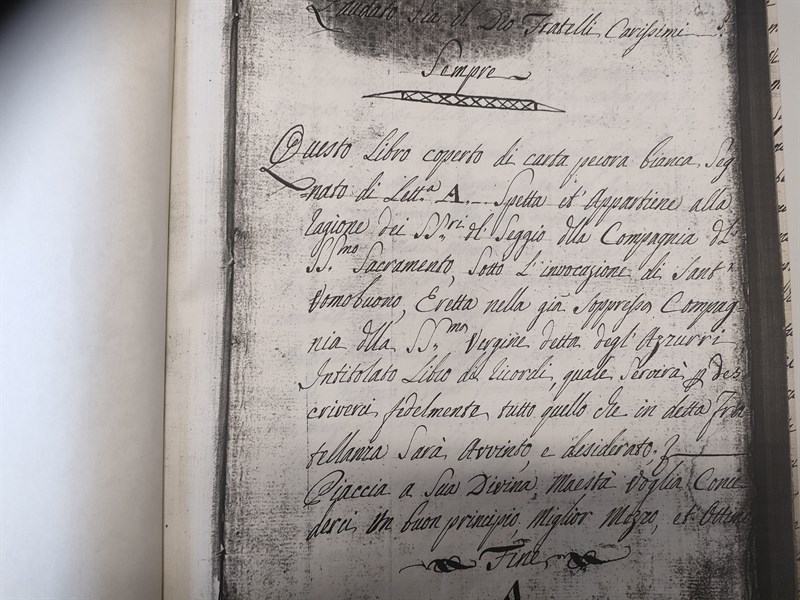 Laudato Sia il Dio Fratelli Carissimi
Sempre
Questo Libro coperto di carta pecora bianca, Seg=
nato di Lett.ª A. Spetta et Appartiene alla
ragione dei SS.ri dl Seggio dlla Compagnia dl
SS.mo Sacramento, Sotto L'invocazione di Sant'
Vomobuono, Eretta nella già Soppressa Compag=
nia dlla SS.ma Vergine detta degl'Azzurri
Intitolato Libro de Ricordi, quale Servirà p des=
criverci fedelmente tutto quello che in detta Fra=
tellanza Sarà Avvinto, e desiderato;
Piaccia a Sua Divina Maestà voglia Conce=
derci un buon principio, Miglior Mezzo, et Ottimo
Fine
A